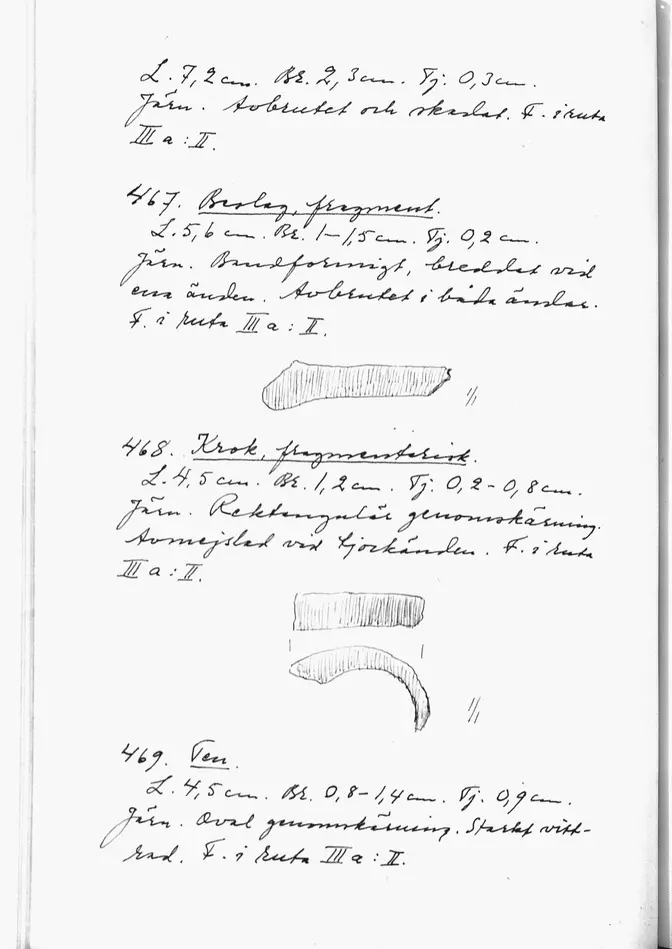 L. 7,2 cm. Br. 2,3 cm. Tj. 0,3 cm.
Järn. Avbrutet och skadat. F. i ruta
III a : II.
467. Beslag, fragment.
L. 5,6 cm. Br. 1-1,5 cm. Tj. 0,2 cm.
Järn. Bandformigt, breddat vid
ena änden. Avbrutet i båda ändar.
F. i ruta III a : II.
1/1
468. Krok, fragmentarisk.
L. 4,5 cm. Br. 1,2 cm. Tj. 0,2-0,8 cm.
Järn. Rektangulär genomskärning.
Avmejslad vid tjockänden. F. i ruta
III a : II.
1/1
469. Ten.
L. 4,5 cm. Br. 0,8-1,4 cm. Tj. 0,9 cm.
Järn. Oval genomskärning. Starkt vitt-
rad. F. i ruta III a : II.